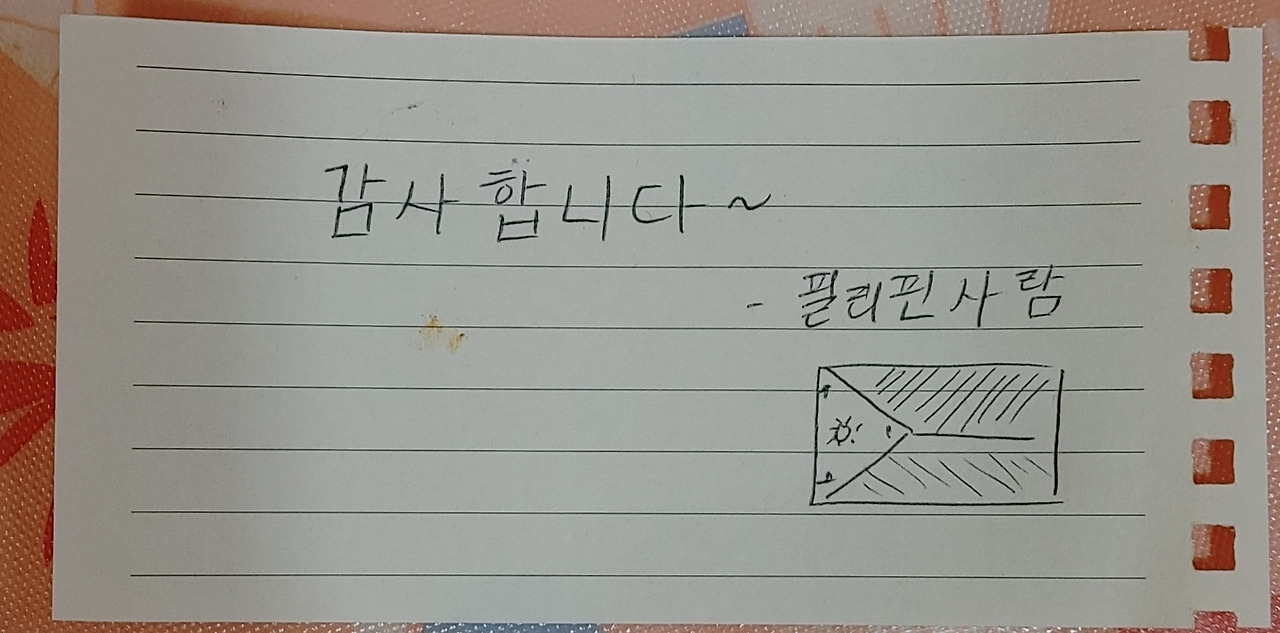 감사합니다~
- 필리핀 사람